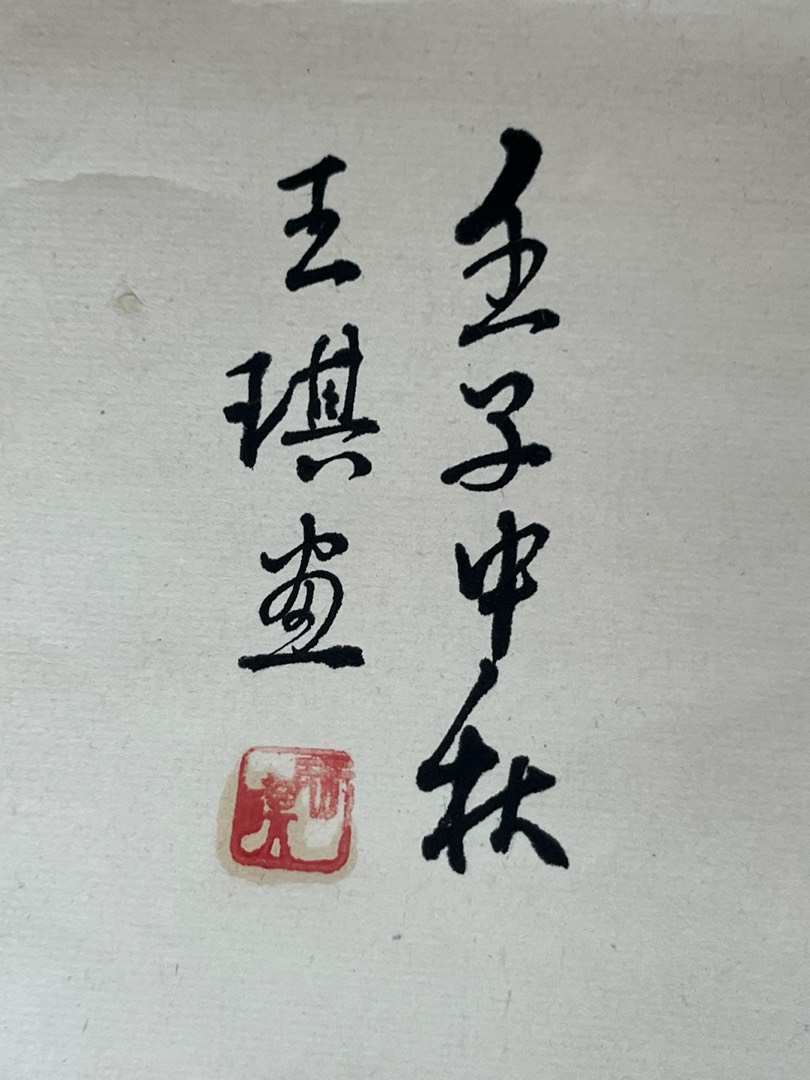 壬子中秋
王琪画